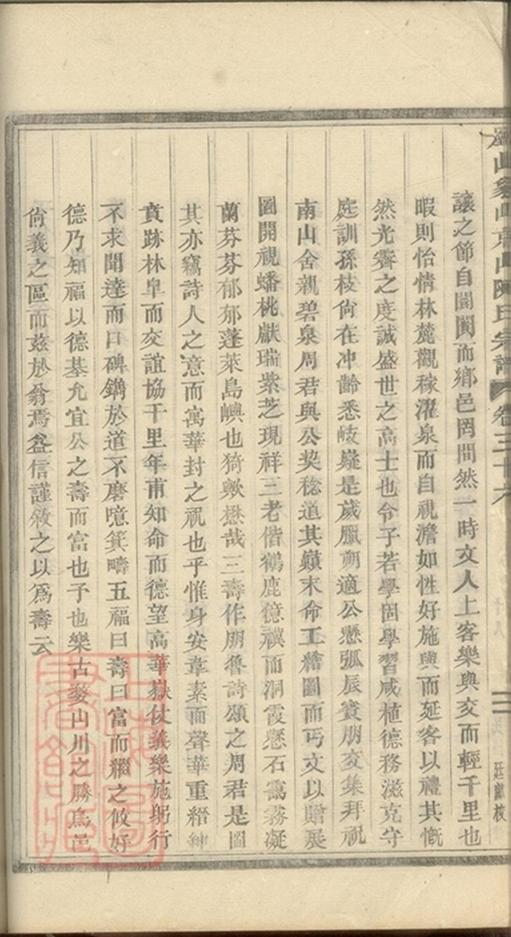 讓之節自閨閫而鄉邑罔間然一時文人上客樂與交而輕千里也
暇則怡情林麓觀稼濯泉而自視澹如性好施與而延客以禮其慨
然光霽之度誠盛世之高士也令子若學固學習咸植德務滋克守
庭訓孫枝尙在冲齡悉岐嶷是歲臘朔適公懸弧辰賓朋交集拜祝
南山舍親碧泉周君與公契稔道其顚末命工繪圖而丐文以贈展
圖開視蟠桃獻瑞紫芝現祥三老偕鶴鹿億禩而洞霞懸石靄霧凝
蘭芬芬郁郁蓬萊島嶼也猗歟懋哉三壽作朋魯詩頌之周君是圖
其亦竊詩人之意而寓華封之祝也乎惟身安韋素而聲華重縉紳
賁跡林臯而交誼協千里年甫知命而德望高華嶽仗義樂施躬行
不求聞達而口碑鐫於道不磨噫箕疇五福曰壽曰富而繼之攸好
德乃知福以德基允宜公之壽而富也予也樂古婺山川之勝爲邑
尙義之區而兹於翁焉益信謹敘之以爲壽云
山陳氏宗譜 卷三十六